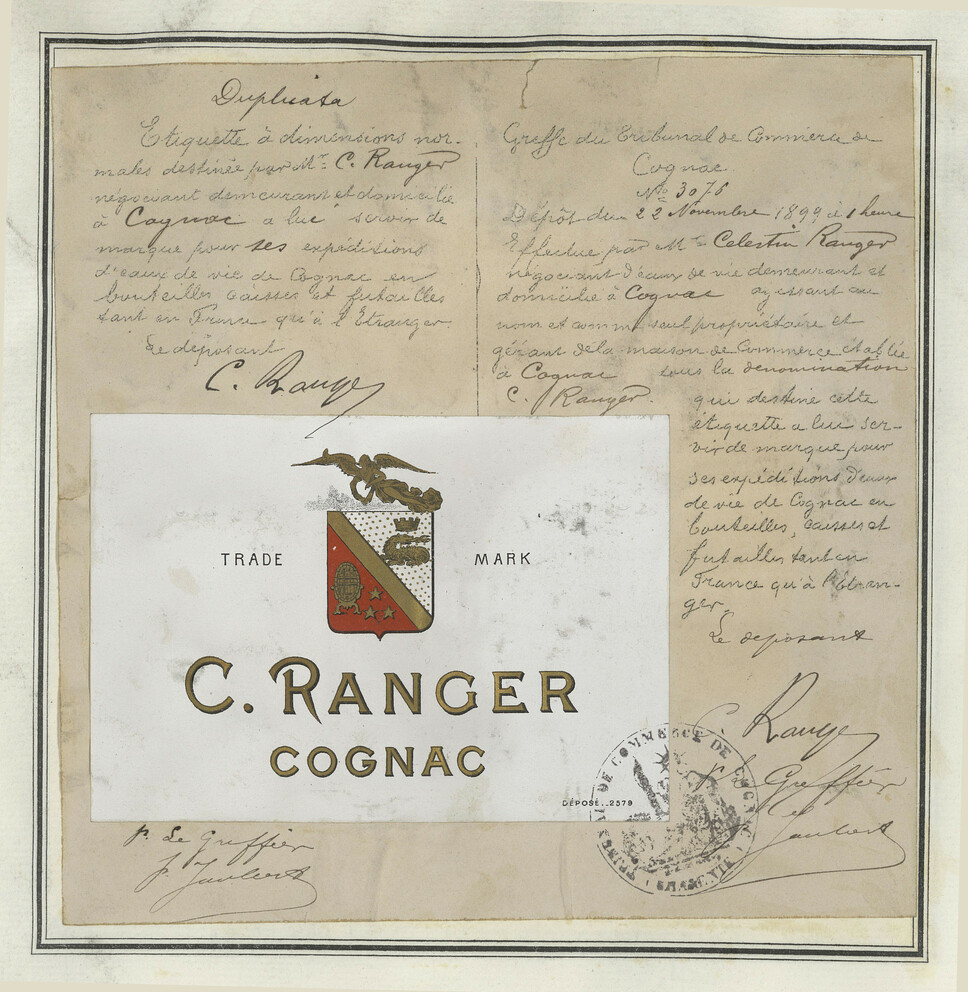 Duplicata
Etiquette à dimensions nor-
males destinée par Mr C. Ranger
négociant demeurant et domicilié
à Cognac a lui servir de
marque pour ses expéditions
d'eaux de vie de Cognac en
bouteilles caisses et futailles
tant en France qu'à l'Etranger.
Le déposant
C. Ranger
Greffe du Tribunal de Commerce de
Cognac
No 3076
Dépôt du 22 Novembre 1899 à 1 heure
Effectué par Mr Celestin Ranger
négociant d'eaux de vie demeurant et
domicilié à Cognac agissant au
nom et comme seul propriétaire et
gérant de la maison de Commerce établie
à Cognac sous la dénomination
C. Ranger.
qui destine cette
étiquette a lui ser-
vir de marque pour
ses expéditions d'eaux
de vie de Cognac en
bouteilles, caisses et
futailles tant en
France qu'à l'Etran-
ger,
Le deposant
C. Ranger
P. Le Greffier
J. Jaubert
TRADE MARK
C. RANGER
COGNAC
DÉPOSÉ..2579
TRIBUNAL DE COMMERCE DE COGNAC
(CHARENTE)
P. Le Greffier
J. Jaubert